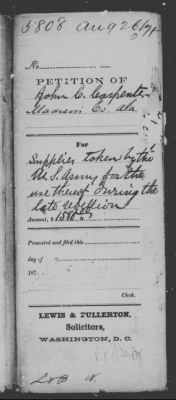 5808 Aug 26/71
No.
PETITION OF
John C. Carpenter
Madison Co Ala
For
Supplies taken by the
U. S. Army for the
use thereof during the
late rebellion
Amount, $
Presented and filed this
day of
187
Clerk.
LEWIS & FULLERTON,
Solicitors,
WASHINGTON, D. C.